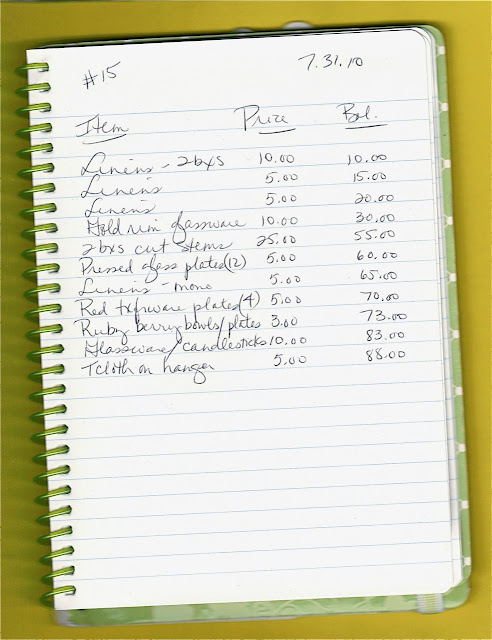 #15 7.31.10
Item Price Bal.
Linens - 2bxs 10.00 10.00
Linens 5.00 15.00
Linens 5.00 20.00
Gold rim glassware 10.00 30.00
2bxs cut stems 25.00 55.00
Pressed glass plates (12) 5.00 60.00
Linens - mono 5.00 65.00
Red plates (4) 5.00 70.00
Ruby berry bowls/plates 3.00 73.00
Glassware/candlesticks 10.00 83.00
Tcloth on hanger 5.00 88.00